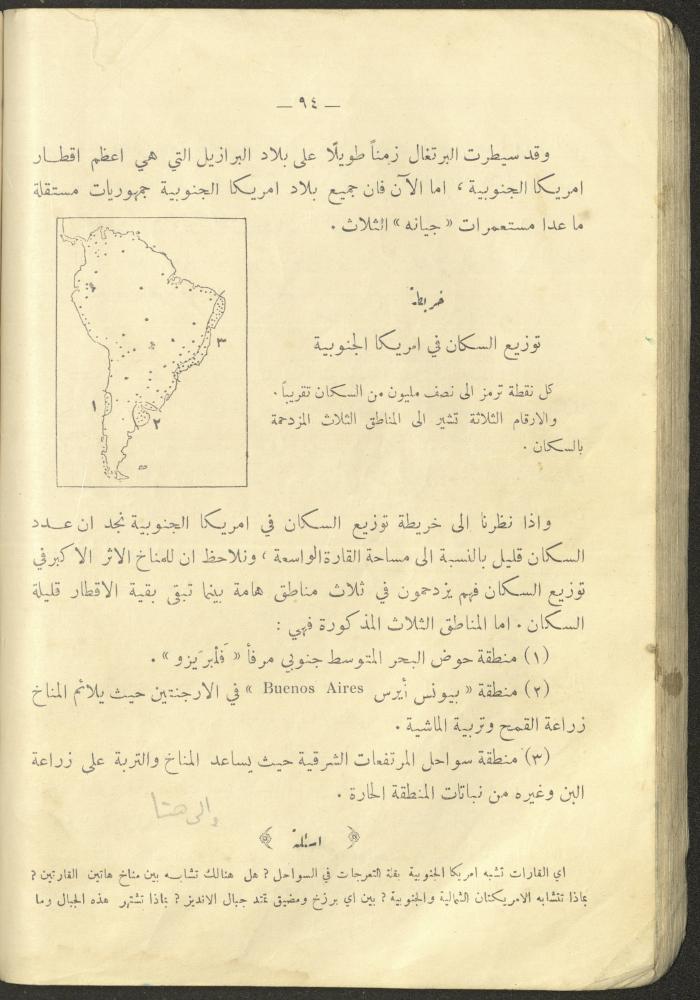 — ٩٤ —
وقد سيطرت البرتغال زمناً طويلًا على بلاد البرازيل التي هي اعظم اقطار
امريكا الجنوبية ، اما الآن فان جميع بلاد امريكا الجنوبية جمهوريات مستقلة
ما عدا مستعمرات « جيانه » الثلاث .
خريطة
توزيع السكان في امريكا الجنوبية
كل نقطة ترمز الى نصف مليون من السكان تقريباً .
والارقام الثلاثة تشير الى المناطق الثلاث المزدحمة
بالسكان .
٣
١
٢
واذا نظرنا الى خريطة توزيع السكان في امريكا الجنوبية نجد ان عدد
السكان قليل بالنسبة الى مساحة القارة الواسعة ، ونلاحظ ان للمناخ الاثر الاكبر في
توزيع السكان فهم يزدحمون في ثلاث مناطق هامة بينما تبقى بقية الاقطار قليلة
السكان . اما المناطق الثلاث المذكورة فهي :
(١) منطقة حوض البحر المتوسط جنوبي مرفأ « فَلْبَرَيزو » .
(٢) منطقة « بيونس أيرس Buenos Aires » في الارجنتين حيث يلائم المناخ
زراعة القمح وتربية الماشية .
(٣) منطقة سواحل المرتفعات الشرقية حيث يساعد المناخ والتربة على زراعة
البن وغيره من نباتات المنطقة الحارة .
والى هنا
اسئلة
اي القارات تشبه امريكا الجنوبية بقلة التعرجات في السواحل ؟ هل هنالك تشابه بين مناخ هاتين القارتين ؟
بماذا تتشابه الامريكتان الشمالية والجنوبية ؟ بين اي برزخ ومضيق تمتد جبال الانديز ؟ بماذا تشتهر هذه الجبال وما